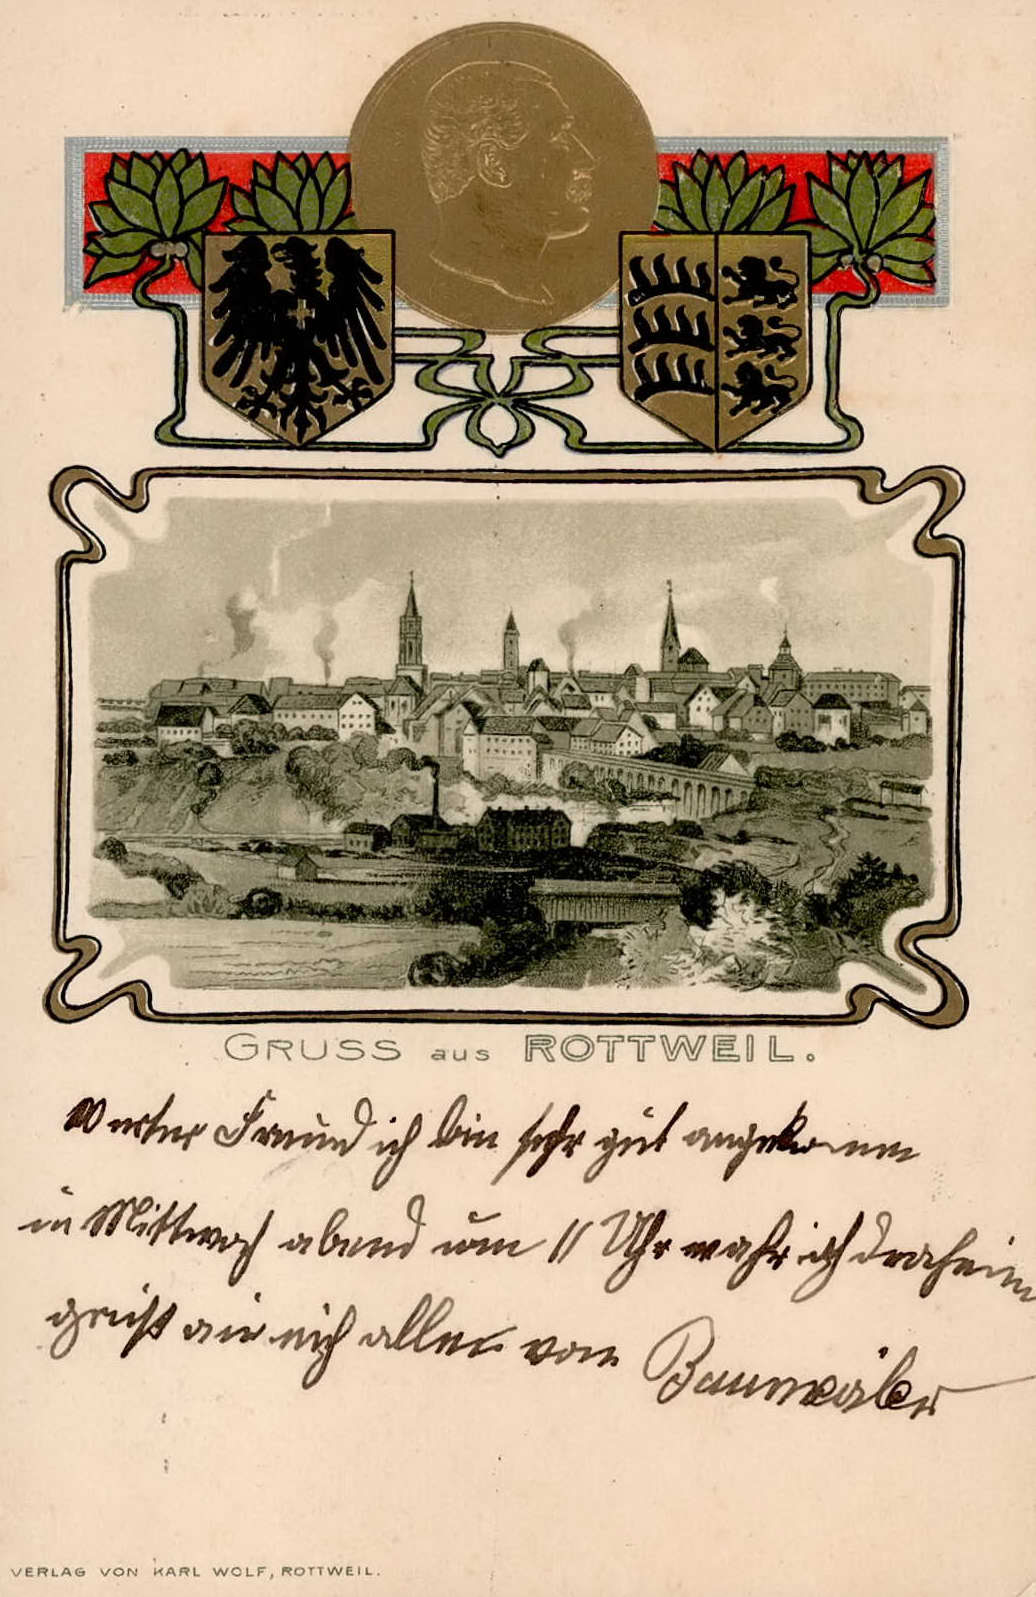 GRUSS aus ROTTWEIL.
Werter Freund ich bin sehr gut angekommen
in Mittwoch abend um 11 Uhr wahr ich draheim
grüßt alle von
VERLAG VON KARL WOLF, ROTTWEIL.